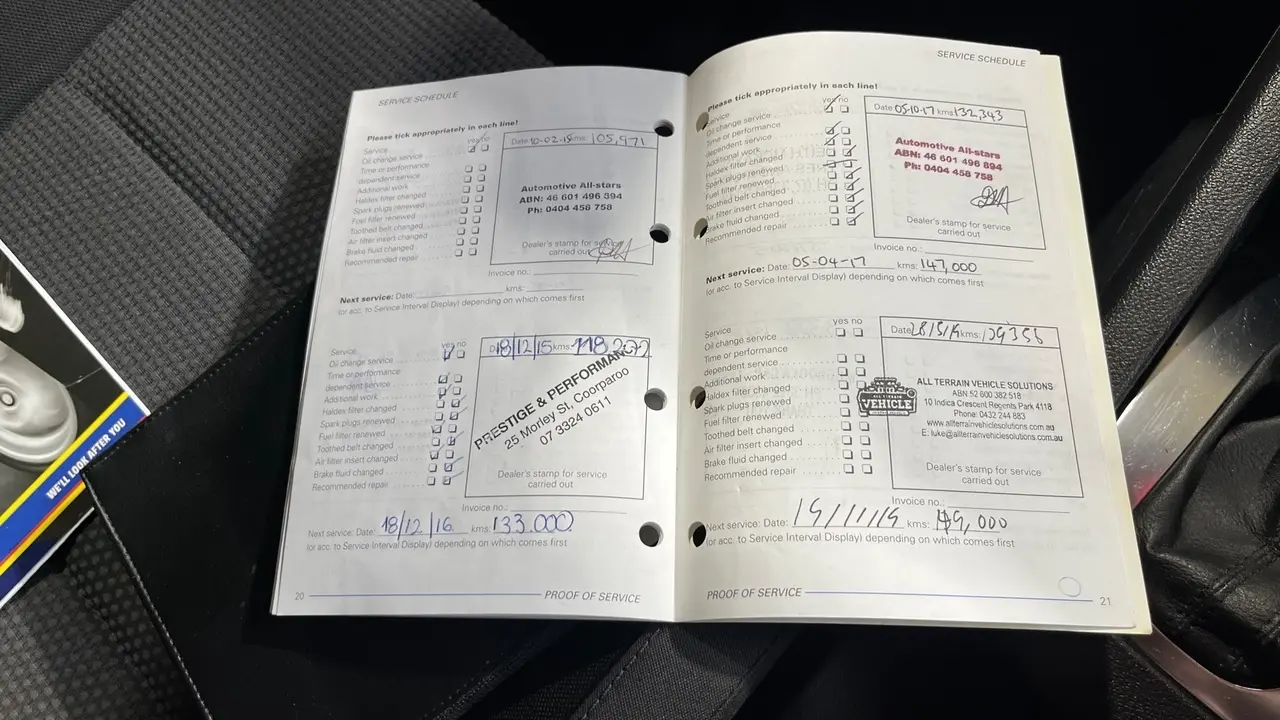 SERVICE SCHEDULE
Please tick appropriately in each line!
yes no
Service
Oil change service
Time or performance
dependent service
Additional work
Haldex filter changed
Spark plugs renewed
Fuel filter renewed
Toothed belt changed
Air filter insert changed
Brake fluid changed
Recommended repair
Date 10-02-15 kms: 105,971
Automotive All-stars
ABN: 46 601 496 894
Ph: 0404 458 758
Dealer's stamp for service
carried out
Invoice no.:
Next service: Date: kms:
(or acc. to Service Interval Display) depending on which comes first
yes no
Service
Oil change service
Time or performance
dependent service
Additional work
Haldex filter changed
Spark plugs renewed
Fuel filter renewed
Toothed belt changed
Air filter insert changed
Brake fluid changed
Recommended repair
18/12/15 kms:
PRESTIGE & PERFORMANC
25 Morley St, Coorparoo
07 3324 0611
Dealer's stamp for service
carried out
Invoice no.:
Next service: Date: 18/12/16 kms: 133.000
(or acc. to Service Interval Display) depending on which comes first
20 PROOF OF SERVICE
SERVICE SCHEDULE
Please tick appropriately in each line!
yes no
Service
Oil change service
Time or performance
dependent service
Additional work
Haldex filter changed
Spark plugs renewed
Fuel filter renewed
Toothed belt changed
Air filter insert changed
Brake fluid changed
Recommended repair
Date 05-10-17 kms: 132,343
Automotive All-stars
ABN: 46 601 496 894
Ph: 0404 458 758
Dealer's stamp for service
carried out
Invoice no.:
Next service: Date: 05-04-17 kms: 147,000
(or acc. to Service Interval Display) depending on which comes first
yes no
Service
Oil change service
Time or performance
dependent service
Additional work
Haldex filter changed
Spark plugs renewed
Fuel filter renewed
Toothed belt changed
Air filter insert changed
Brake fluid changed
Recommended repair
Date kms:
VEHICLE
ALL TERRAIN VEHICLE SOLUTIONS
ABN 52 600 382 518
10 Indica Crescent Regents Park 4118
Phone: 0432 244 883
www.allterrainvehiclesolutions.com.au
E: luke@allterrainvehiclesolutions.com.au
Dealer's stamp for service
carried out
Invoice no.:
Next service: Date: 19/11/19 kms: 149,000
(or acc. to Service Interval Display) depending on which comes first
PROOF OF SERVICE 21
WE'LL LOOK AFTER YOU